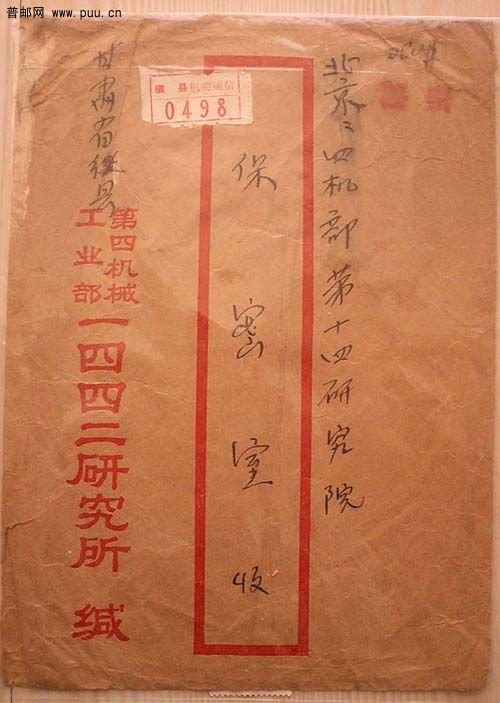 普邮网 www.puu.cn
北京:四机部第十四研究院
徽 县 机要通信
0498
保密室收
甘肃省徽县
第四机械
工业部
一四四二研究所 缄